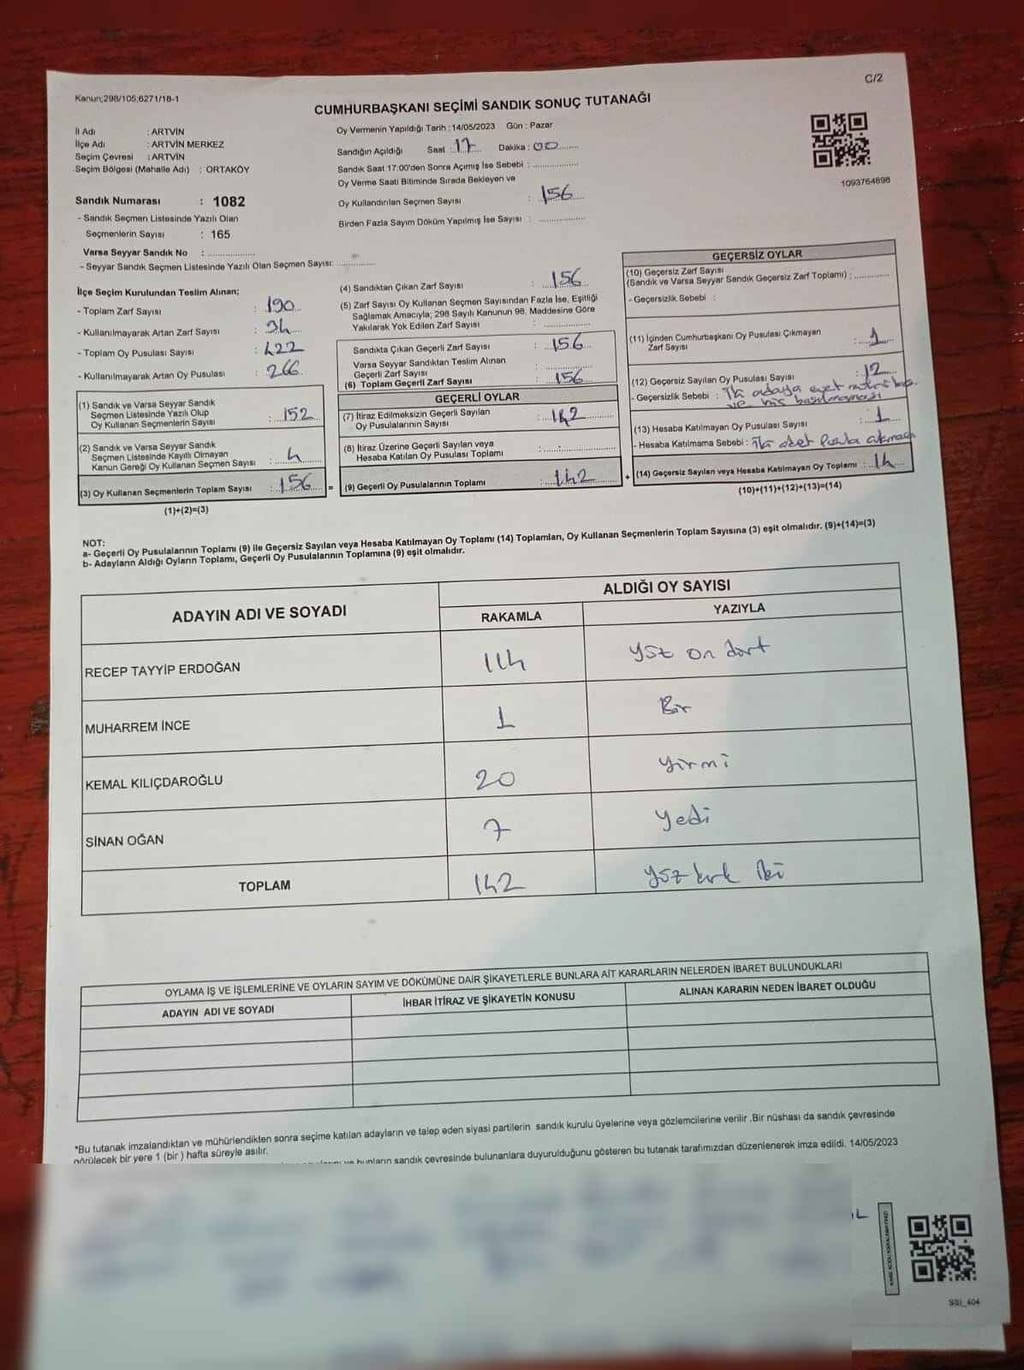 Kanun;298/105;6271/18-1
C/2
CUMHURBAŞKANI SEÇİMİ SANDIK SONUÇ TUTANAĞI
İl Adı : ARTVİN
İlçe Adı : ARTVİN MERKEZ
Seçim Çevresi : ARTVİN
Seçim Bölgesi (Mahalle Adı) : ORTAKÖY
Sandık Numarası : 1082
- Sandık Seçmen Listesinde Yazılı Olan
Seçmenlerin Sayısı : 165
Varsa Seyyar Sandık No :
- Seyyar Sandık Seçmen Listesinde Yazılı Olan Seçmen Sayısı:
Oy Vermenin Yapıldığı Tarih : 14/05/2023 Gün : Pazar
Sandığın Açıldığı Saat : 17 Dakika : 00
Sandık Saat 17:00'den Sonra Açımış İse Sebebi :
Oy Verme Saati Bitiminde Sırada Bekleyen ve
Oy Kullandırılan Seçmen Sayısı : 156
Birden Fazla Sayım Döküm Yapılmış İse Sayısı :
1093764898
İlçe Seçim Kurulundan Teslim Alınan;
- Toplam Zarf Sayısı : 190
- Kullanılmayarak Artan Zarf Sayısı : 34
- Toplam Oy Pusulası Sayısı : 422
- Kullanılmayarak Artan Oy Pusulası : 266
(1) Sandık ve Varsa Seyyar Sandık
Seçmen Listesinde Yazılı Olup
Oy Kullanan Seçmenlerin Sayısı : 152
(2) Sandık ve Varsa Seyyar Sandık
Seçmen Listesinde Kayıtlı Olmayan
Kanun Gereği Oy Kullanan Seçmen Sayısı : 4
(3) Oy Kullanan Seçmenlerin Toplam Sayısı : 156
(1)+(2)=(3)
=
(4) Sandıktan Çıkan Zarf Sayısı : 156
(5) Zarf Sayısı Oy Kullanan Seçmen Sayısından Fazla İse, Eşitliği
Sağlamak Amacıyla; 298 Sayılı Kanunun 98. Maddesine Göre
Yakılarak Yok Edilen Zarf Sayısı :
Sandıkta Çıkan Geçerli Zarf Sayısı : 156
Varsa Seyyar Sandıktan Teslim Alınan
Geçerli Zarf Sayısı :
(6) Toplam Geçerli Zarf Sayısı : 156
GEÇERLİ OYLAR
(7) İtiraz Edilmeksizin Geçerli Sayılan
Oy Pusulalarının Sayısı : 142
(8) İtiraz Üzerine Geçerli Sayılan veya
Hesaba Katılan Oy Pusulası Toplamı :
(9) Geçerli Oy Pusulalarının Toplamı : 142
+
GEÇERSİZ OYLAR
(10) Geçersiz Zarf Sayısı
(Sandık ve Varsa Seyyar Sandık Geçersiz Zarf Toplamı) :
- Geçersizlik Sebebi :
(11) İçinden Cumhurbaşkanı Oy Pusulası Çıkmayan
Zarf Sayısı : 1
(12) Geçersiz Sayılan Oy Pusulası Sayısı : 12
- Geçersizlik Sebebi : İki adaya evet
ve hiç basılmaması
(13) Hesaba Katılmayan Oy Pusulası Sayısı : 1
- Hesaba Katılmama Sebebi : İki adet Pusula çıkması
(14) Geçersiz Sayılan veya Hesaba Katılmayan Oy Toplamı : 14
(10)+(11)+(12)+(13)=(14)
NOT:
a- Geçerli Oy Pusulalarının Toplamı (9) ile Geçersiz Sayılan veya Hesaba Katılmayan Oy Toplamı (14) Toplamları, Oy Kullanan Seçmenlerin Toplam Sayısına (3) eşit olmalıdır. (9)+(14)=(3)
b- Adayların Aldığı Oyların Toplamı, Geçerli Oy Pusulalarının Toplamına (9) eşit olmalıdır.
ADAYIN ADI VE SOYADI ALDIĞI OY SAYISI
RAKAMLA YAZIYLA
RECEP TAYYİP ERDOĞAN 114 yüz on dört
MUHARREM İNCE 1 Bir
KEMAL KILIÇDAROĞLU 20 yirmi
SİNAN OĞAN 7 yedi
TOPLAM 142 yüz kırk iki
OYLAMA İŞ VE İŞLEMLERİNE VE OYLARIN SAYIM VE DÖKÜMÜNE DAİR ŞİKAYETLERLE BUNLARA AİT KARARLARIN NELERDEN İBARET BULUNDUKLARI
ADAYIN ADI VE SOYADI İHBAR İTİRAZ VE ŞİKAYETİN KONUSU ALINAN KARARIN NEDEN İBARET OLDUĞU
*Bu tutanak imzalandıktan ve mühürlendikten sonra seçime katılan adayların ve talep eden siyasi partilerin sandık kurulu üyelerine veya gözlemcilerine verilir .Bir nüshası da sandık çevresinde
görülecek bir yere 1 (bir ) hafta süreyle asılır.
bunların sandık çevresinde bulunanlara duyurulduğunu gösteren bu tutanak tarafımızdan düzenlenerek imza edildi. 14/05/2023